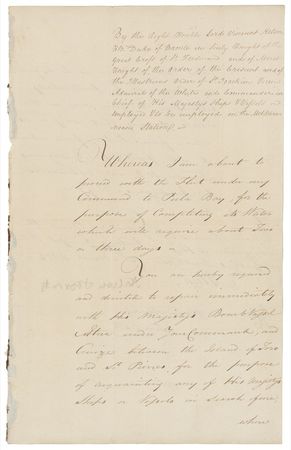 By the Right Honble Lord Viscount Nelson
KB. Duke of Bronte in Sicily Knight of the
Great Cross of St Ferdinand and of Merit
Knight of the Order of the Crescent and of
the Illustrious Order of St Joachim Vice
Admiral of the White and Commander in
Chief of His Majestys Ships & Vessels
employed & to be employed on the Mediterra
nean Station &c
Whereas I am about to
proceed with the Fleet under my
Command to Pula Bay, for the
purpose of Compleating its Water
which will require about Two
or three days
You are hereby required
and directed to repair immediately
with His Majestys Bomb Vessel
Ætna under Your Command, and
Cruize between the Island of Toro
and St Pierres, for the purpose
of acquainting any of His Majestys
Ships or Vessels in search of me,
where